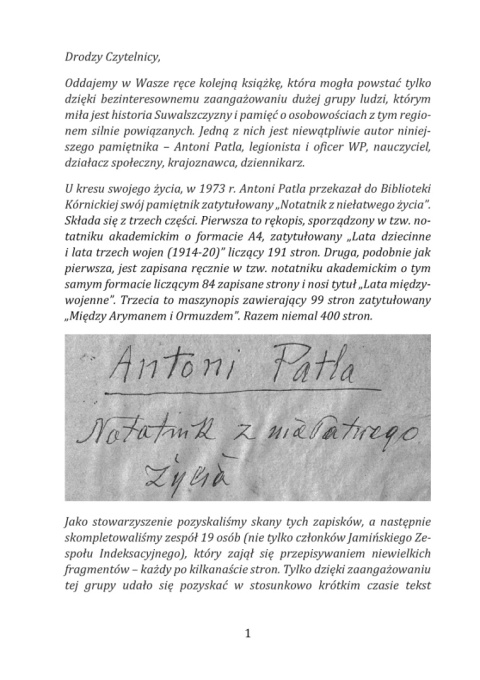 Drodzy Czytelnicy,
Oddajemy w Wasze ręce kolejną książkę, która mogła powstać tylko
dzięki bezinteresownemu zaangażowaniu dużej grupy ludzi, którym
miła jest historia Suwalszczyzny i pamięć o osobowościach z tym regio-
nem silnie powiązanych. Jedną z nich jest niewątpliwie autor niniej-
szego pamiętnika – Antoni Patla, legionista i oficer WP, nauczyciel,
działacz społeczny, krajoznawca, dziennikarz.
U kresu swojego życia, w 1973 r. Antoni Patla przekazał do Biblioteki
Kórnickiej swój pamiętnik zatytułowany „Notatnik z niełatwego życia”.
Składa się z trzech części. Pierwsza to rękopis, sporządzony w tzw. no-
tatniku akademickim o formacie A4, zatytułowany „Lata dziecinne
i lata trzech wojen (1914-20)” liczący 191 stron. Druga, podobnie jak
pierwsza, jest zapisana ręcznie w tzw. notatniku akademickim o tym
samym formacie liczącym 84 zapisane strony i nosi tytuł „Lata między-
wojenne”. Trzecia to maszynopis zawierający 99 stron zatytułowany
„Między Arymanem i Ormuzdem”. Razem niemal 400 stron.
Antoni Patla
Notatnik z niełatwego
życia
Jako stowarzyszenie pozyskaliśmy skany tych zapisków, a następnie
skompletowaliśmy zespół 19 osób (nie tylko członków Jamińskiego Ze-
społu Indeksacyjnego), który zajął się przepisywaniem niewielkich
fragmentów – każdy po kilkanaście stron. Tylko dzięki zaangażowaniu
tej grupy udało się pozyskać w stosunkowo krótkim czasie tekst
1